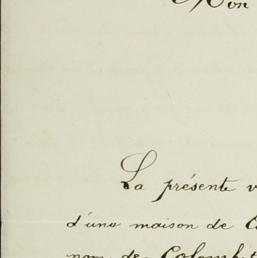 Mon
La présente v
d'une maison de C
nom de Colomb